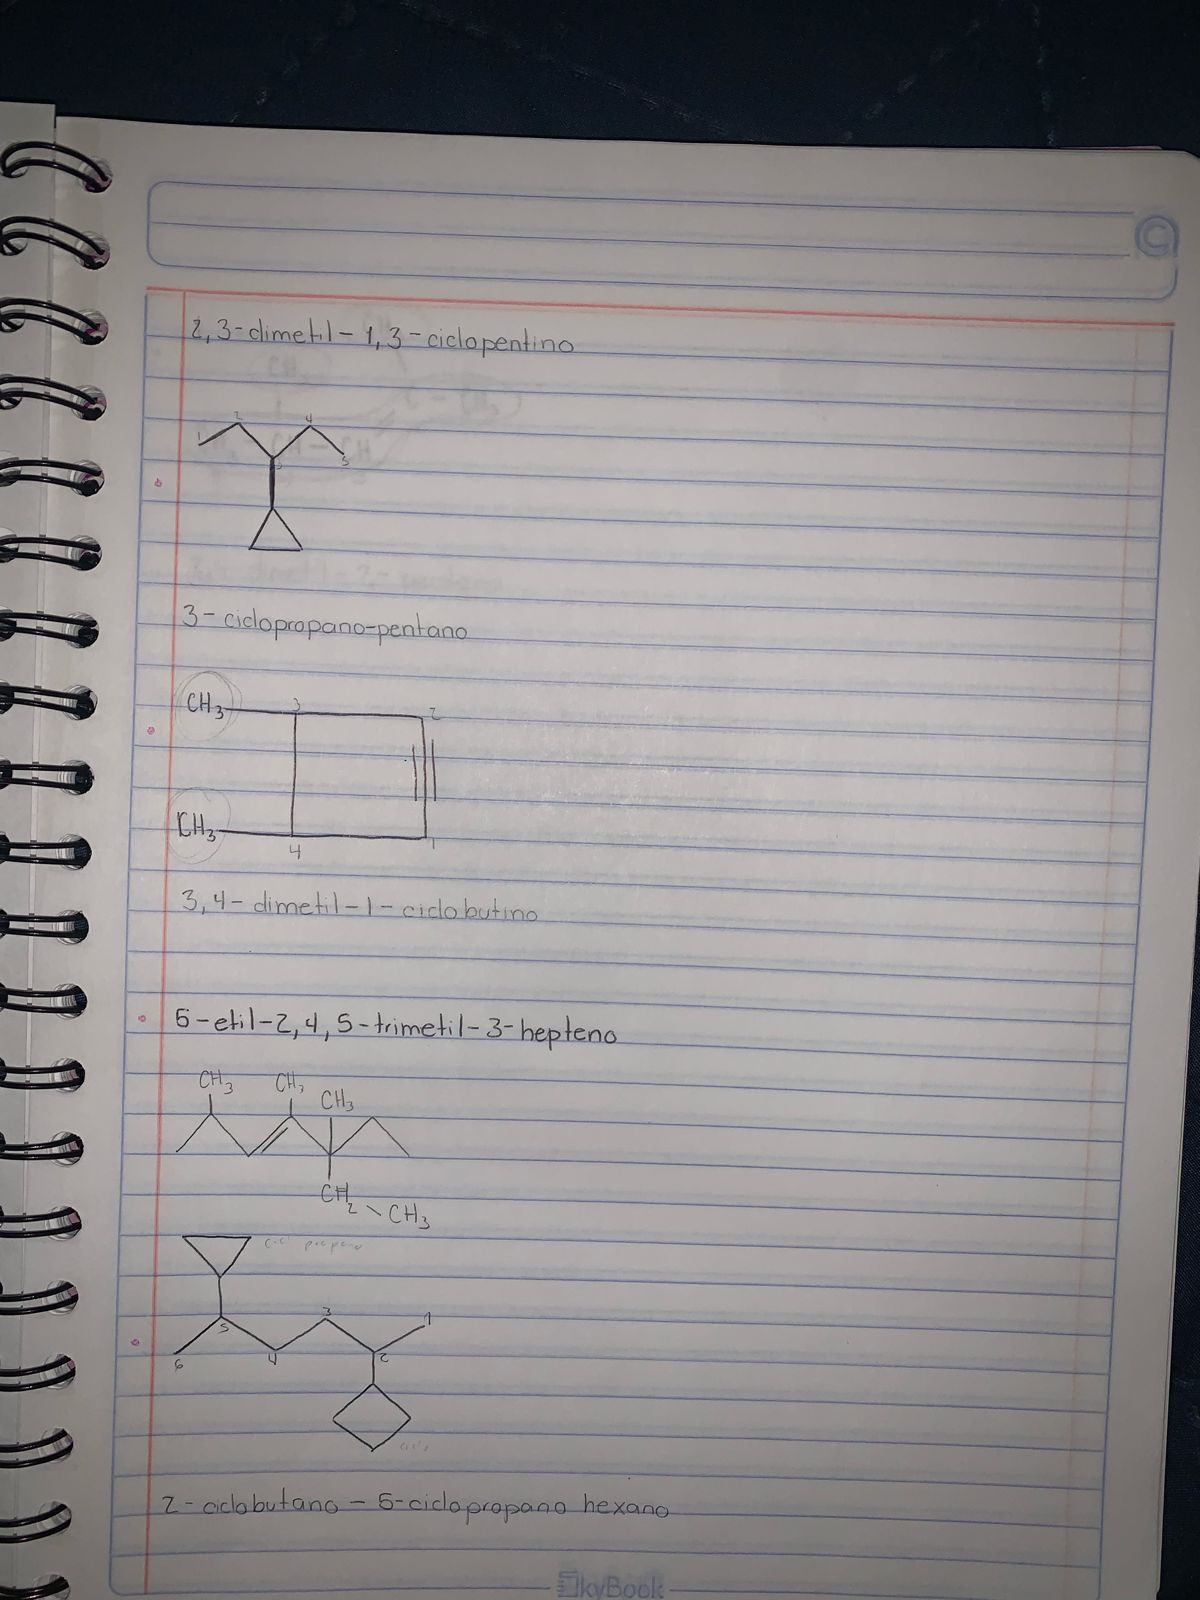 2,3-dimetil-1,3-ciclopentino
1 2 3 4 5
3-ciclopropano-pentano
CH3 3 2
CH3 4 1
3,4-dimetil-1-ciclobutino
5-etil-2,4,5-trimetil-3-hepteno
CH3 CH3 CH3
CH2 \ CH3
propano
6 5 4 3 2 1
2-ciclobutano-5-ciclopropano hexano
SkyBook